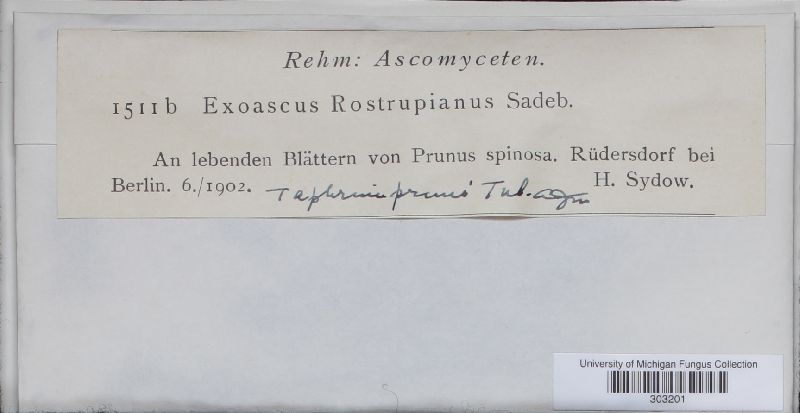 Rehm: Ascomyceten.
1511b Exoascus Rostrupianus Sadeb.
An lebenden Blättern von Prunus spinosa. Rüdersdorf bei
Berlin. 6./1902. Taphrina pruni Tul. H. Sydow.
University of Michigan Fungus Collection
303201